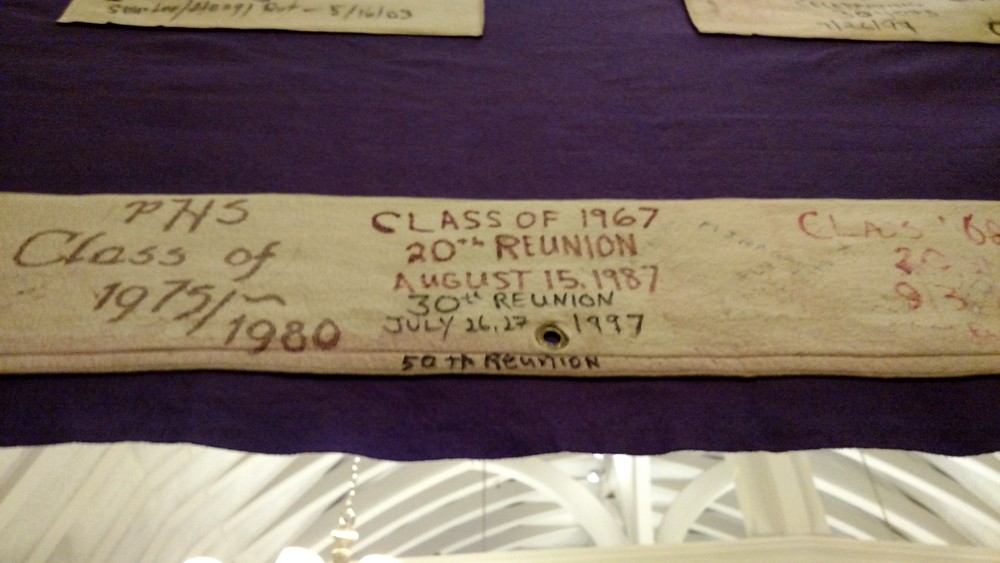 5/16/03
7/26/97
PHS
Class of
1975/~
1980
CLASS OF 1967
20th REUNION
AUGUST 15, 1987
30th REUNION
JULY 26, 27 1997
50th REUNION
CLASS '68
20